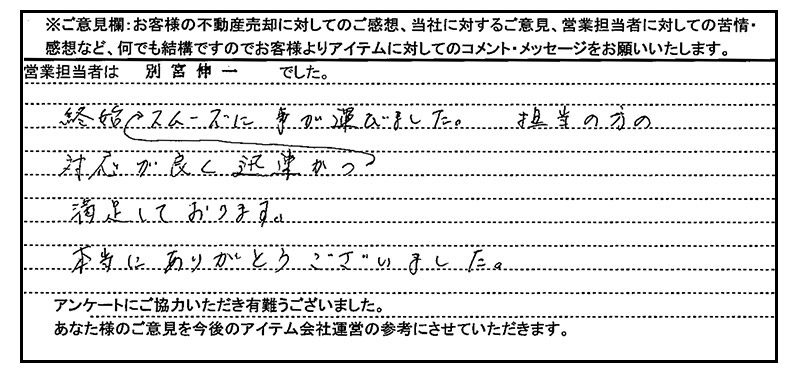 ※ご意見欄：お客様の不動産売却に対してのご感想、当社に対するご意見、営業担当者に対しての苦情・
感想など、何でも結構ですのでお客様よりアイテムに対してのコメント・メッセージをお願いいたします。
営業担当者は 別宮伸一 でした。
終始スムーズに事が運びました。 担当の方の
対応が良く迅速かつ
満足しております。
本当にありがとうございました。
アンケートにご協力いただき有難うございました。
あなた様のご意見を今後のアイテム会社運営の参考にさせていただきます。